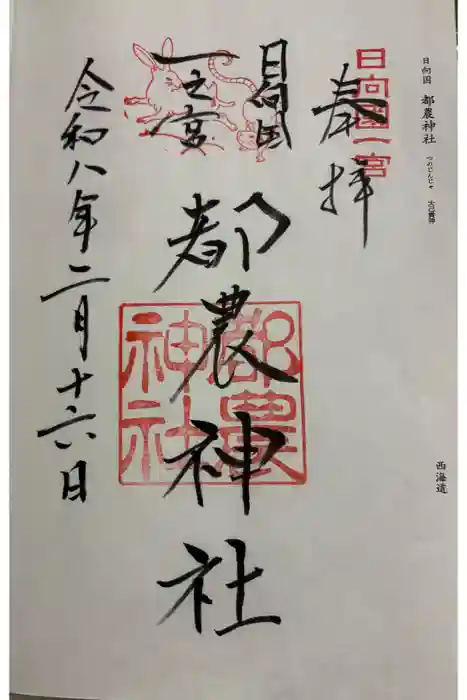 日向国 都農神社 つのじんじゃ 大己貴神
西海道
日向国一宮
奉拝
日向国
一之宮
都農神社
都農
神社
令和八年二月十六日